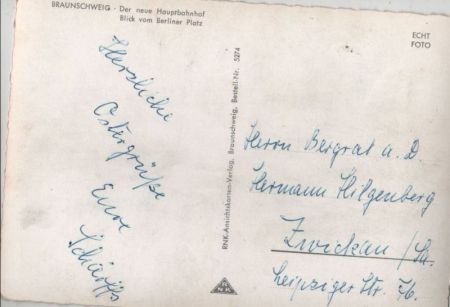 BRAUNSCHWEIG - Der neue Hauptbahnhof
Blick vom Berliner Platz
ECHT
FOTO
Herzliche
Ostergrüße
Eure
RNK-Ansichtskarten-Verlag, Braunschweig, Bestell-Nr. 5274
Herrn Bergrat a. D
Hermann Hilgenberg
Zwickau / Sa.
Leipziger Str. 76.